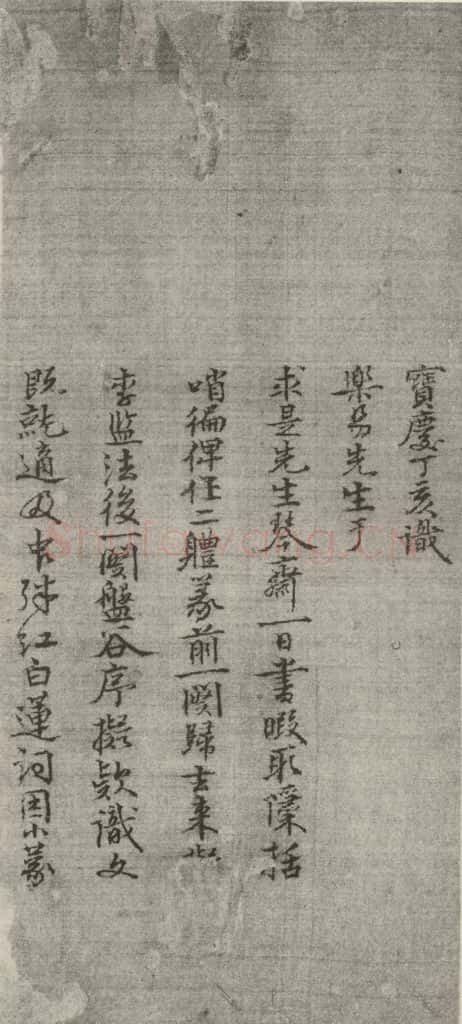 寶慶丁亥識
樂易先生于
求是先生琴齋一日書暇取檃括
哨徧俾作二體篆前一闋歸去來以
李監法後一闋盤谷序擬款識文
既就適及舟泳紅白蓮詞因小篆